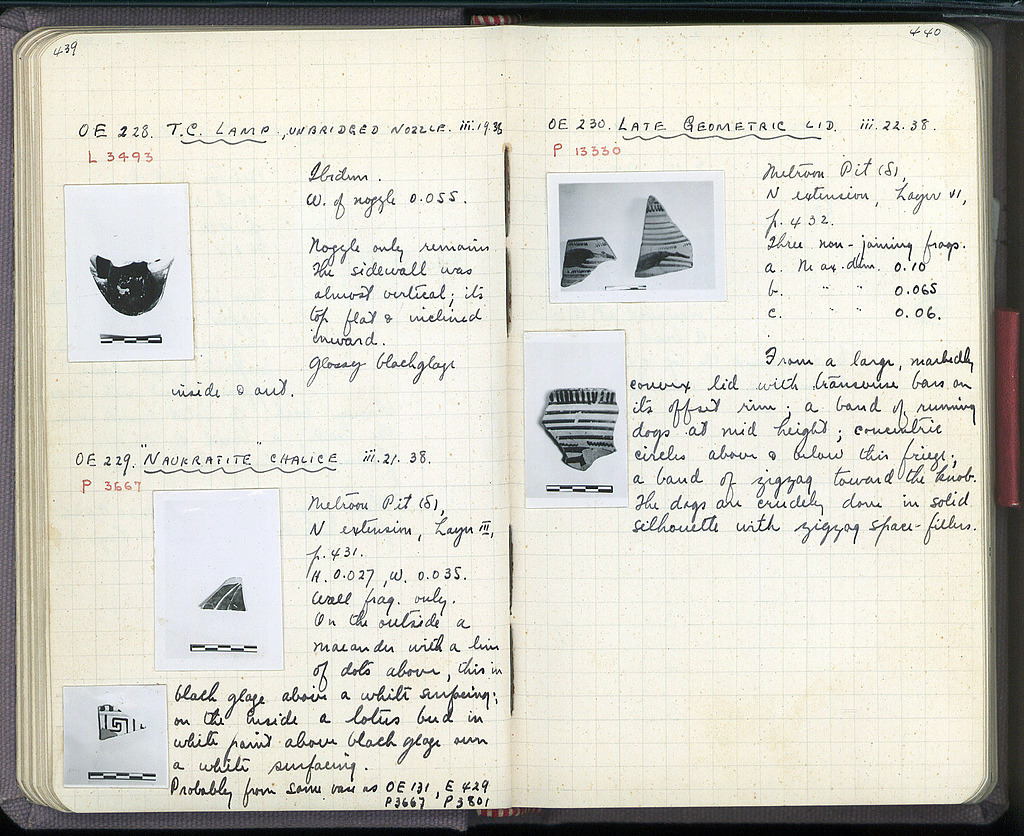 439
OE 228. T.C. LAMP, UNBRIDGED NOZZLE. iii.19.38
L 3493
Ibidem.
W. of nozzle 0.055.
Nozzle only remains
The sidewall was
almost vertical; its
top flat & inclined
inward.
Glossy blackglaze
inside & out.
OE 229. "NAUKRATITE" CHALICE iii.21.38.
P 3667
Metroon Pit (δ),
N extension, Layer III,
p. 431.
H. 0.027, W. 0.035.
Wall frag. only.
On the outside a
maeander with a line
of dots above, this in
black glaze above a white surfacing;
on the inside a lotus bud in
white paint above black glaze over
a white surfacing.
Probably from same vase as OE 131, E 429
P3667 P3801
440
OE 230. LATE GEOMETRIC LID. iii.22.38.
P 13330
Metroon Pit (δ),
N extension, Layer VI,
p. 432.
Three non-joining frags.
a. Max. dim. 0.10
b. " " 0.065
c. " " 0.06.
From a large, markedly
convex lid with transverse bars on
its offset rim; a band of running
dogs at mid height; concentric
circles above & below this frieze;
a band of zigzag toward the knob.
The dogs are crudely done in solid
silhouette with zigzag space-fillers.